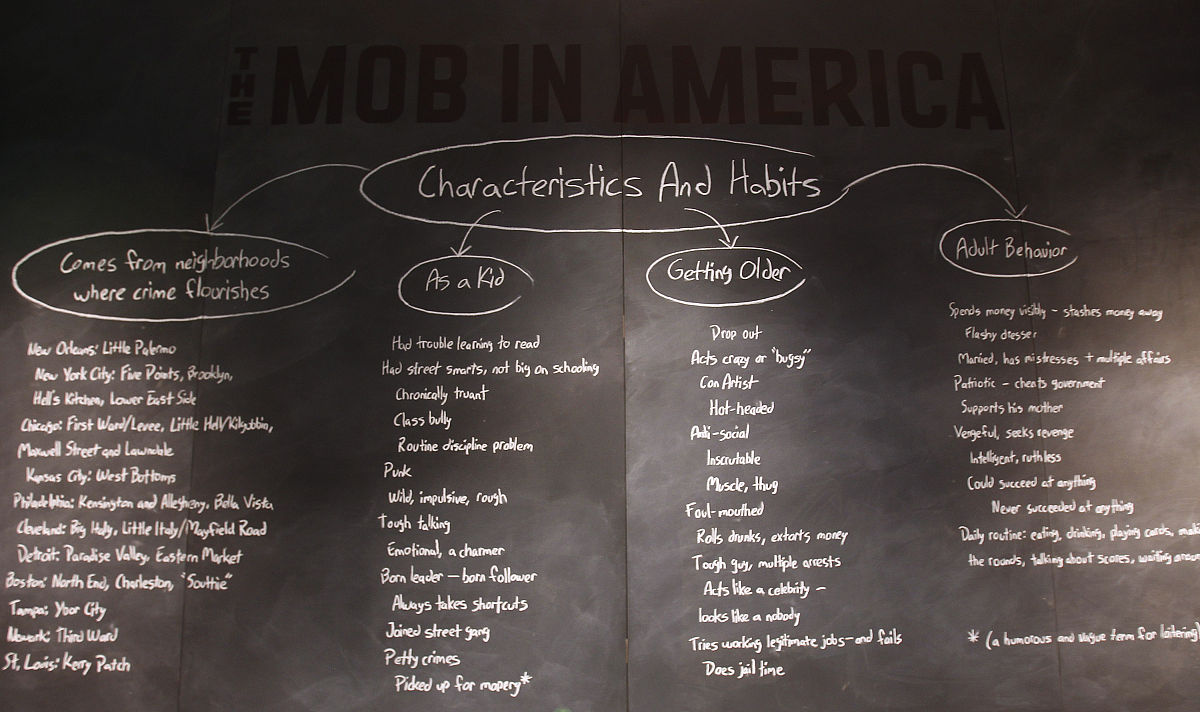 THE MOB IN AMERICA
Characteristics And Habits
Comes from neighborhoods
where crime flourishes
New Orleans: Little Palermo
New York City: Five Points, Brooklyn,
Hell's Kitchen, Lower East Side
Chicago: First Ward/Levee, Little Hell/Kilgubbin,
Maxwell Street and Lawndale
Kansas City: West Bottoms
Philadelphia: Kensington and Allegheny, Bella Vista
Cleveland: Big Italy, Little Italy/Mayfield Road
Detroit: Paradise Valley, Eastern Market
Boston: North End, Charleston, "Southie"
Tampa: Ybor City
Newark: Third Ward
St. Louis: Kerry Patch
As a Kid
Had trouble learning to read
Had street smarts, not big on schooling
Chronically truant
Class bully
Routine discipline problem
Punk
Wild, impulsive, rough
Tough talking
Emotional, a charmer
Born leader – born follower
Always takes shortcuts
Joined street gang
Petty crimes
Picked up for mopery*
Getting Older
Drop out
Acts crazy or "bugsy"
Con Artist
Hot-headed
Anti-social
Inscrutable
Muscle, thug
Foul-mouthed
Rolls drunks, extorts money
Tough guy, multiple arrests
Acts like a celebrity –
looks like a nobody
Tries working legitimate jobs – and fails
Does jail time
Adult Behavior
Spends money visibly – stashes money away
Flashy dresser
Married, has mistresses + multiple affairs
Patriotic – cheats government
Supports his mother
Vergeful, seeks revenge
Intelligent, ruthless
Could succeed at anything
Never succeeded at anything
Daily routine: eating, drinking, playing cards,
the rounds, talking about scores, waiting
* (a humorous and vague term for loitering)